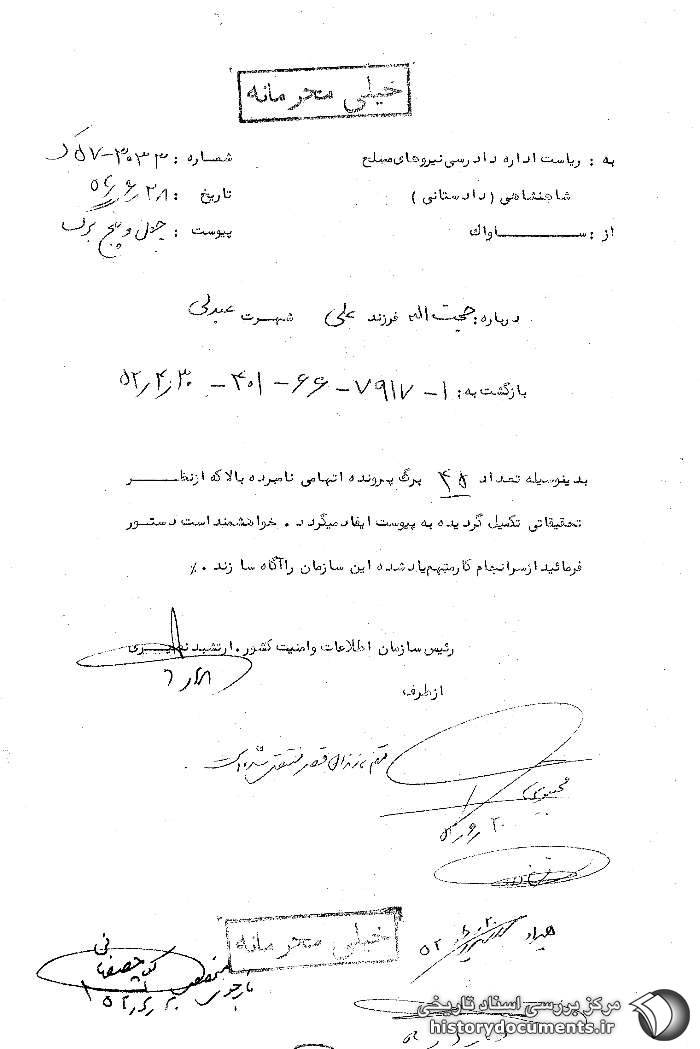 خیلی محرمانه
به : ریاست اداره دادرسی نیروهای مسلح
شاهنشاهی (دادستانی)
از : ســـــاواک
شماره : ۳۰۳۳-۵۷ک
تاریخ : ۵۲/۶/۲۸
پیوست : چهل و پنج برگ
درباره : حجت اله فرزند علی شهرت عبدلی
بازگشت به : ۱-۷۹۱۷-۶۶-۴۰۱ - ۵۲/۴/۳۰
بدینوسیله تعداد ۴۵ برگ پرونده اتهامی نامبرده بالا که ازنظـــر
تحقیقاتی تکمیل گردیده به پیوست ایفاد میگردد . خواهشمند است دستور
فرمائید از سرانجام کار متهم یاد شده این سازمان را آگاه سازند . ٪
رئیس سازمان اطلاعات و امنیت کشور . ارتشبد نصیـــری
ازطرف
متهم بزندان قصر منتقل شده است
خیلی محرمانه
مرکز بررسی اسناد تاریخی
historydocuments.ir